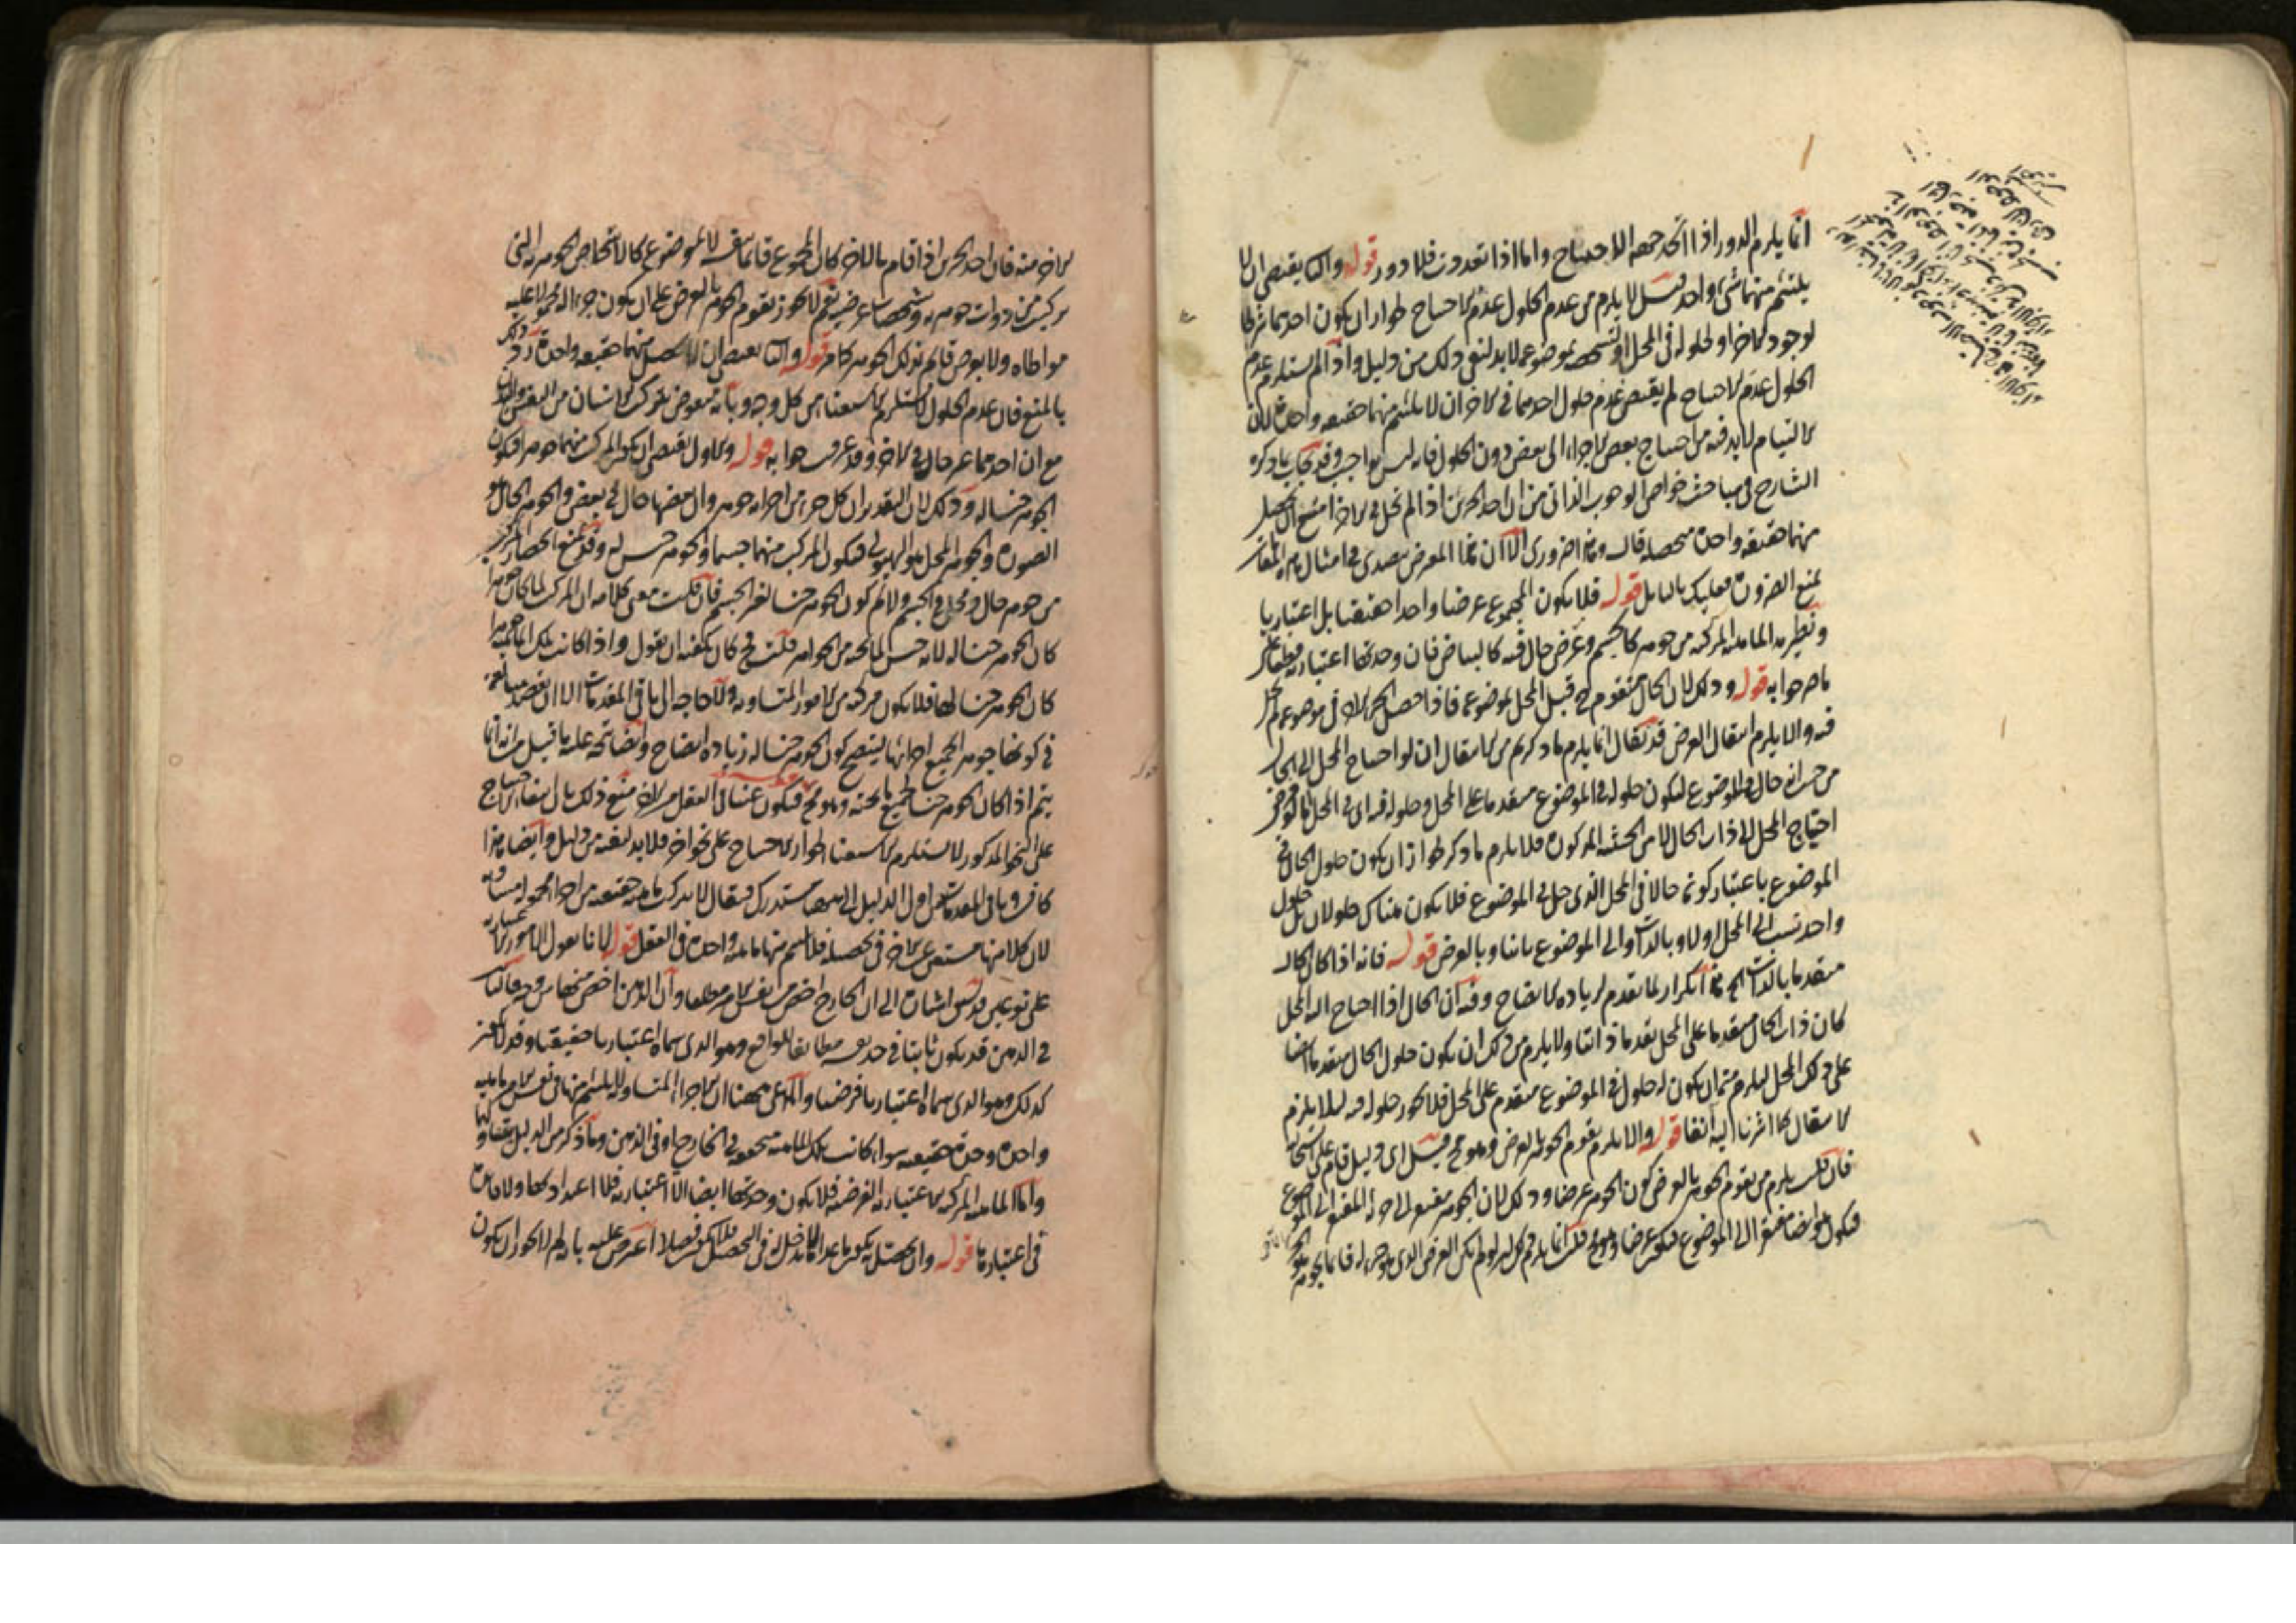 انما يلزم الدور اذا اتحد جهة الاحتياج واما اذا تعددت فلا دور قوله والثا يقتضى ان لا
يلتئم منهما شئ واحد قيل لا يلزم من عدم الحلول عدم الاحتياج لجواز ان يكون احدهما شرطا
لوجود الاخر او لحلوله فى المحل او لتشخصه بموضوعه لابد لنفى ذلك من دليل واذا لم يستلزم عدم
الحلول عدم الاحتياج لم يقتض عدم حلول احدهما فى الاخر ان لا يلتئم منهما حقيقة واحدة لان
الالتيام لابد فيه من احتياج بعض الاجزاء الى بعض دون الحلول فانه ليس بواجب وقد يجاب بما ذكره
الشارح فى مباحث خواص الوجوب الذاتى من ان احد الجزئين اذا لم تحل فى الاخر امتنع ان يحصل
منهما حقيقة واحدة متحصلة قال وهذا ضرورى الا ان هذا المعرض تصدى فى امثال هذه المقام
بمنع الضرورة فعليك بالتامل قوله فلا يكون المجموع عرضا واحدا حقيقيا بل اعتباريا
ونظيره الماهية المركبة من جوهر كالجسم وعرض حال فيه كالبياض فان وحدتها اعتبارية قطعا
ما مر جوابه قوله وذلك لان الحال متقوم قبل المحل بموضوعه فاذا حصل الجزء الاول فى موضوعه لم يحل
فيه والا يلزم انتقال العرض قد يقال انما يلزم ما ذكرتم من الانتقال ان لو احتاج المحل الى الحال
من حيث انه حال فى الموضوع ليكون حلوله فى الموضوع متقدما على المحل وحلوله فيه اى فى المحل
احتياج المحل لا ذات الحال لا من الحيثية المذكورة فلا يلزم ما ذكر لجواز ان يكون حلول الحال فى
الموضوع باعتبار كونه حالا فى المحل الذى حل فى الموضوع فلا يكون هناك حلولان بل حلول
واحد نسب الى المحل اولا وبالذات والى الموضوع ثانيا وبالعرض قوله فانه اذا كان الحال
متقدما بالذات الخ هذا تكرار لما تقدم لزيادة الايضاح وفيه ان الحال اذا احتاج اليه المحل
كان ذات الحال متقدما على المحل تقدما ذاتيا ولا يلزم من ذلك ان يكون حلول الحال متقدما ايضا
على ذلك المحل ليلزم ثم ان يكون له حلول فى الموضوع متقدم على المحل فلا يجوز حلوله فيه لئلا يلزم
الانتقال كما اشرنا اليه آنفا قوله والا يلزم تقوم الجوهر بالعرض وهو مح قيل اى دليل قام على استحالته
فان قلت يلزم من تقوم الجوهر بالعرض كون الجوهر عرضا وذلك لان الجوهر مفتقر الى جزئه المفتقر الى الموضوع
فيكون هو ايضا مفتقرا الى الموضوع فيكون عرضا وهو مح قلت انما يلزم ذلك لو لم يكن العرض الذى هو جزؤه قائما بجوهر
الاخر منه فان احد الجزئين اذا قام بالاخر كان المجموع قائما بنفسه لا بموضوع كالاشخاص الجوهرية التى
تركبت من ذوات جوهرية وتشخصات عرضية نعم لا يجوز تقوم الجوهر بالعرض على ان يكون جزءا له محمولا عليه
مواطاة ولا بعرض قائم بذلك الجوهر كما مر قوله والثا يقتضى ان لا يحصل منهما حقيقة واحدة رد ذلك
بالمنع فان عدم الحلول لا يستلزم الاستغناء من كل وجه وبانه معوض بتركب الانسان من النفس والبدن
مع ان احدهما غير حال فى الاخر وقد عرفت جوابه قوله والاول يقتضى ان يكون المركب منهما جوهرا فيكون
الجوهر جنسا له وذلك لان التقدير ان كل جزء من اجزائه جوهر وان بعضها حال فى بعض والجوهر الحال هو
الصورة والجوهر المحل هو الهيولى فيكون المركب منهما جسما والجوهر جنس له وقد يمنع انحصار المركب
من جوهر حال ومحل فى الجسم ولا نم كون الجوهر جنسا لغير الجسم فان قلت معنى كلامه ان المركب لما كان جوهرا
كان الجوهر جنسا له لانه جنس لما تحته من الجواهر قلت فح كان يكفيه ان يقول واذا كانت تلك الماهية جوهرا
كان الجوهر جنسا لها فلا يكون مركبة من الامور المتساوية ولا حاجة الى باقى المقدمات الا ان يقصد مبالغة
فى كونها جوهرا بجميع اجزائها ليتضح كون الجوهر جنسا له زيادة ايضاح وايضا يتجه عليه ما قيل من انه انما
يتم اذا كان الجوهر جنسا لجميع ما تحته وهو مح فيكون غنيا فى العقل من الاخر منع ذلك بان انتفاء الاحتياج
على النحو المذكور لا يستلزم الاستغناء لجواز الاحتياج على نحو اخر فلا بد لنفيه من دليل وايضا هذا
كاف وباقى المقدمات من اول الدليل الى ههنا مستدرك فيقال لا يتركب ماهية حقيقية من اجزاء محمولة متساوية
لان كلا منها مستغن عن الاخر فى تحصله فلا يلتئم منها ماهية واحدة فى العقل قوله لانا نقول الامور الاعتبارية
على نوعين قد سبق اشارة الى ان الخارج اخص من نفس الامر مطلقا وان الذهن اخص منها من وجه فالثابت
فى الذهن قد يكون ثابتا فى حد نفسه مطابقا للواقع وهو الذى سماه اعتباريا حقيقيا وقد لا يكون
كذلك وهو الذى سماه اعتباريا فرضيا والمدعى ههنا ان الاجزاء المتساوية لا يلتئم منها فى نفس الامر ماهية
واحدة وحدة حقيقية سواء كانت تلك الماهية متحققة فى الخارج او فى الذهن وما ذكر من الدليل يتناولهما
واما الماهية المركبة الاعتبارية الفرضية فلا يكون وحدتها ايضا الا اعتبارية فلا اعتداد بها ولا فائدة
فى اعتبارها قوله وان حصلته يكون ما عداه لا مدخل له فى التحصل فلا يكون فصلا اعترض عليه بانه لم لا يجوز ان يكون